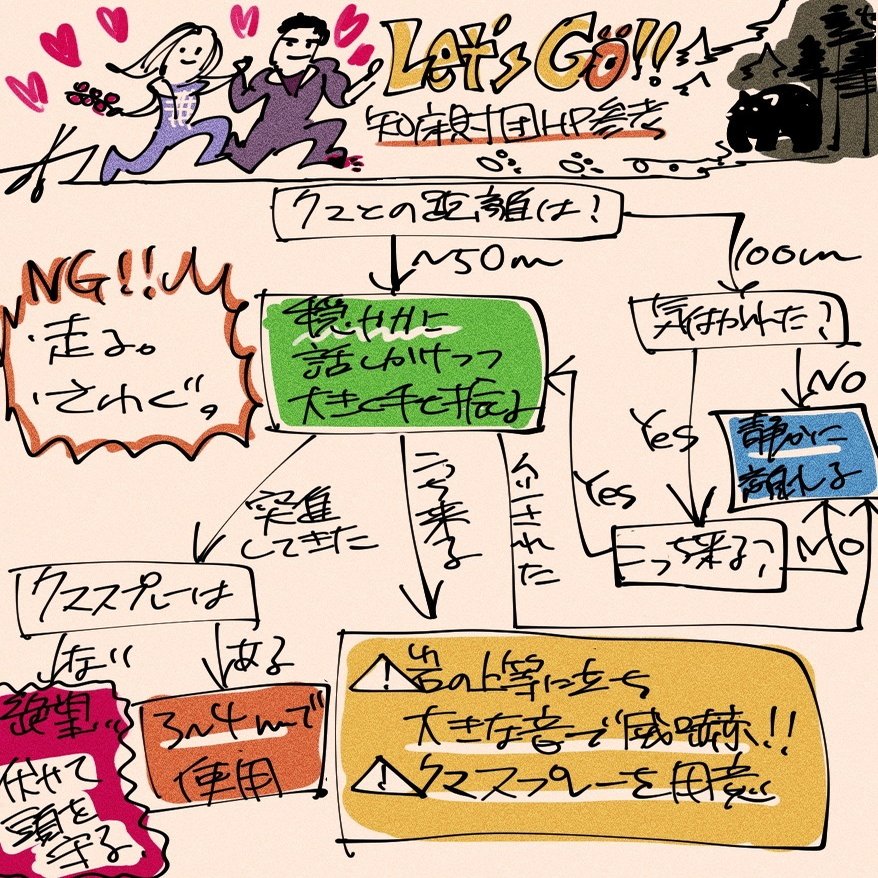 Let's Go!!
知床財団HP参考
クマとの距離は?
~50m
100m
NG!!
・走る。
・さわぐ。
穏やかに
話しかけつつ
大きく手を振る
気付かれた?
NO
Yes
静かに
離れる
こっち来る?
Yes
NO
突進
してきた
こっち来る
クマスプレーは
ない
ある
絶望…
伏せて
頭を
守る
3~4mで
使用
⚠岩の上等に立ち
大きな音で威嚇!!
⚠クマスプレーを用意